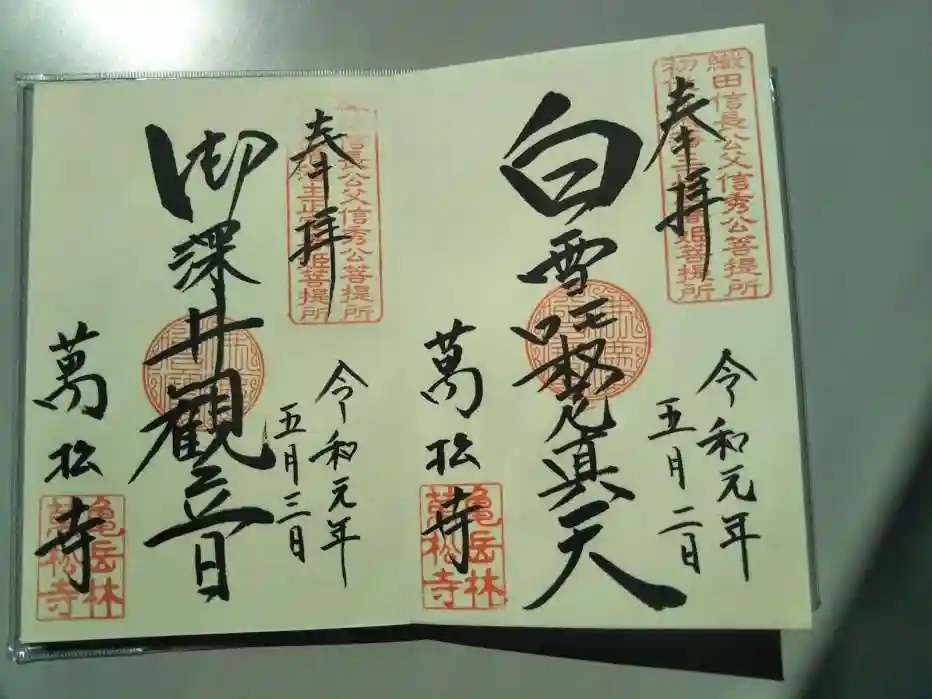 織田信長公父信秀公菩提所
姫菩提所
奉拝
白雪吒枳尼真天
令和元年
五月二日
萬松寺
亀岳林
萬松寺
信長公父信秀公菩提所
姫菩提所
奉拝
御深井観音
令和元年
五月三日
萬松寺
亀岳林
萬松寺